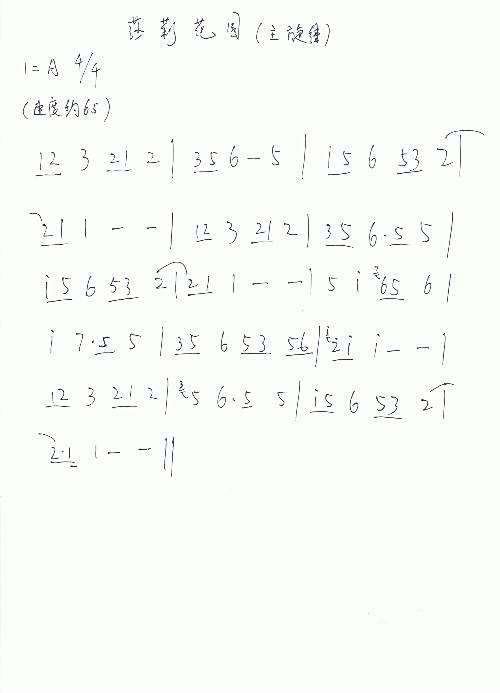 莎莉花园(主旋律)
1=A 4/4
(速度约65)
12 3 21 2 | 35 6 - 5 | i5 6 53 2 |
21 1 - - | 12 3 21 2 | 35 6·5 5 |
i5 6 53 2 | 21 1 - - | 5 i 65 6 |
i 7·5 5 | 35 6 53 56 | 2i i - - |
12 3 21 2 | 5 6·5 5 | i5 6 53 2 |
2·1 1 - - ||